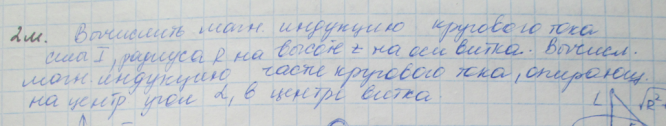 2м. Вычислить магн. индукцию кругового тока
сила I, радиуса R на высоте z на оси витка. Вычисл.
магн. индукцию части кругового тока, опирающ.
на центр угол α, в центре витка.